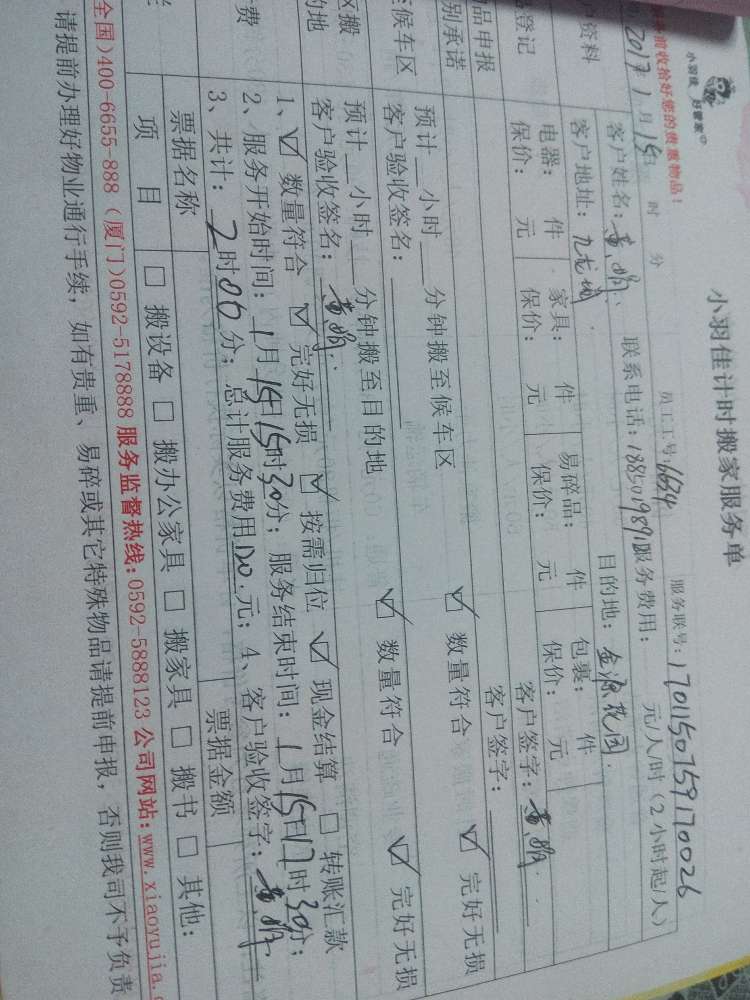 小羽佳 好管家
小羽佳计时搬家服务单
前收拾好您的贵重物品!
员工工号:6624 服务联号:17011507591170026
2017年1月15日 时 分
户资料 客户姓名: 联系电话: 服务费用: 元/人/时(2小时起/人)
客户地址:九龙城 目的地:金源花园
登记 电器: 件 家具: 件 易碎品: 件 包装: 件
保价: 元 保价: 元 保价: 元 保价: 元
品申报 客户签字:
别承诺 客户签字:
候车区 预计__小时__分钟搬至候车区 ☑ 数量符合 ☑ 完好无损
客户验收签名:
区搬 预计__小时__分钟搬至目的地 ☑ 数量符合 ☑ 完好无损
的地 客户验收签名:
1、☑ 数量符合 ☑ 完好无损 ☑ 按需归位 ☑ 现金结算 □ 转账汇款
费 2、服务开始时间:1月15日15时30分;服务结束时间:1月15日17时30分;
3、共计:2时00分;总计服务费用120.元;4、客户验收签字:
票据名称 票据金额
项 目 □ 搬设备 □ 搬办公家具 □ 搬家具 □ 搬书 □ 其他:
全国)400-6655-888 (厦门)0592-5178888 服务监督热线:0592-5888123 公司网站:www.xiaoyujia.
请提前办理好物业通行手续,如有贵重、易碎或其它特殊物品请提前申报,否则我司不予负责